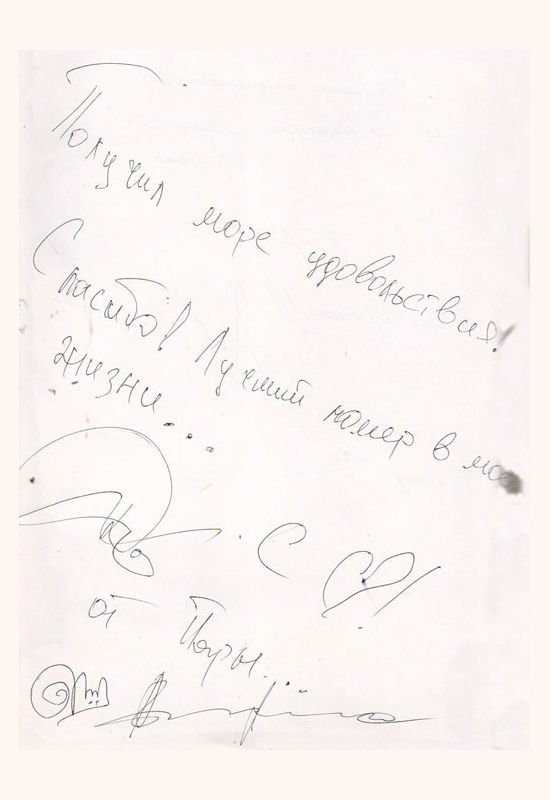 Получил море удовольствия.
Спасибо! Лучший номер в мое
жизни...
С
от Пауры...